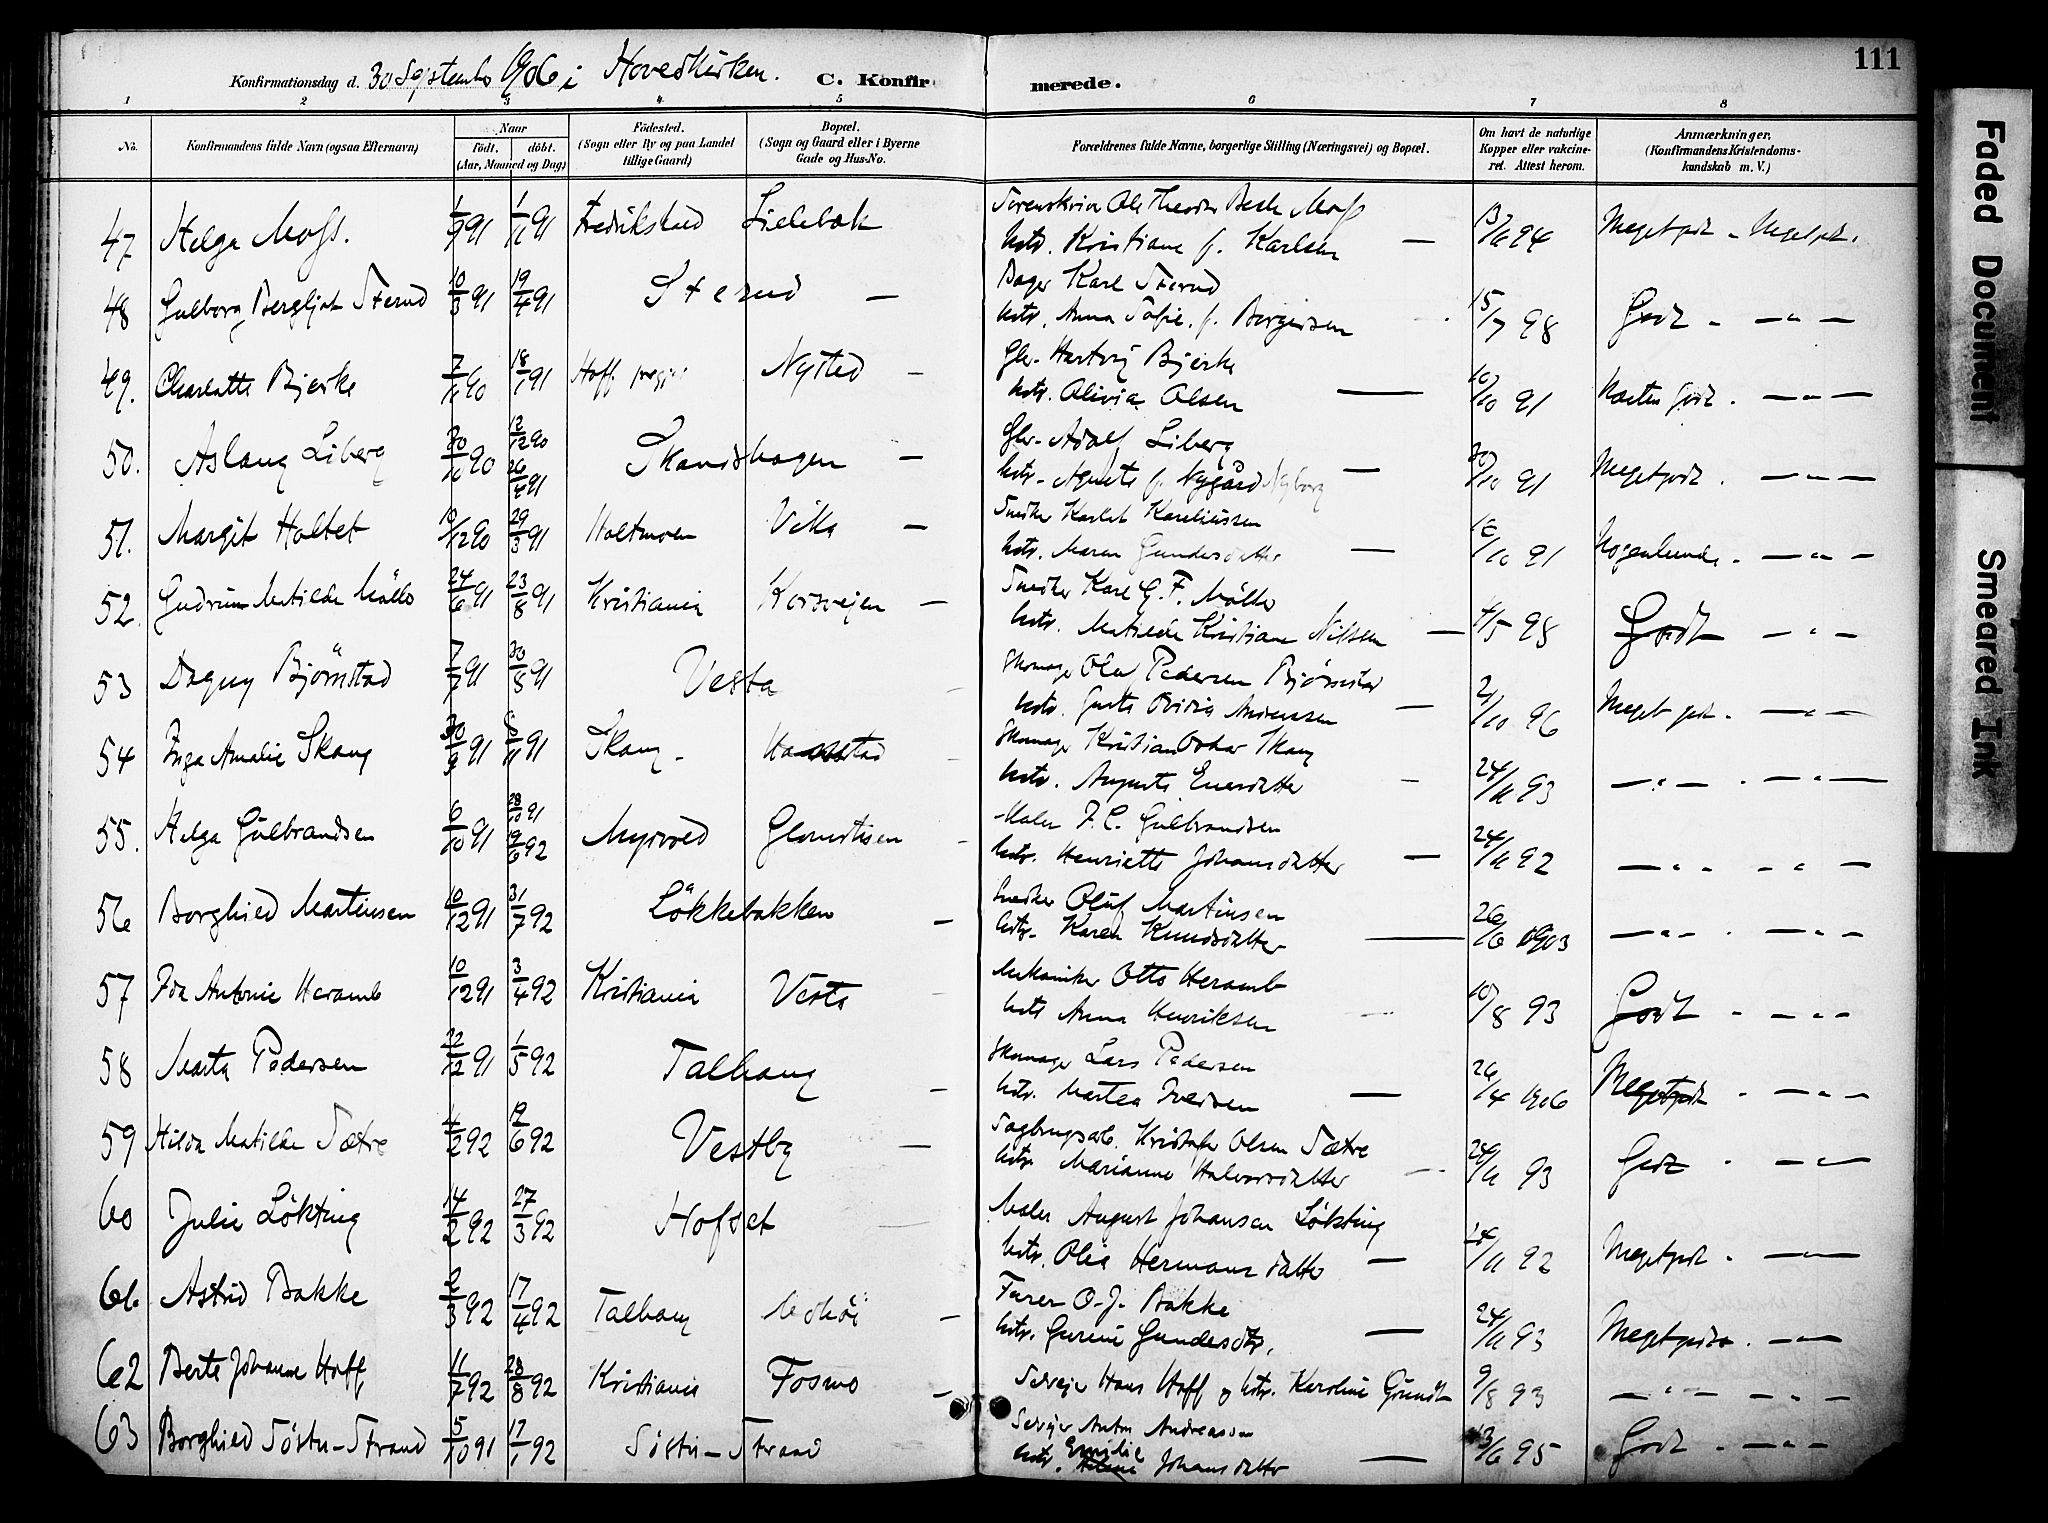 Konfirmationsdag d. 30 September 1906 i Hovedkirken. C. Konfirmerede. 111
1 2 3 4 5 6 7 8
No.
Konfirmandens fulde Navn (ogsaa Efternavn)
Naar
født. døbt.
(Aar, Maaned og Dag)
Fødested.
(Sogn eller By og paa Landet
tillige Gaard)
Bopæl.
(Sogn og Gaard eller i Byerne
Gade og Hus-No.
Forældrenes fulde Navne, borgerlige Stilling (Næringsvei) og Bopæl.
Om havt de naturlige
Kopper eller vakcine-
ret. Attest herom.
Anmærkninger,
(Konfirmandens Kristendoms-
kundskab m. V.)
47 Helga Moss. 1/9 91 1/11 91 Fredrikstad Lillebæk Sorenskriver Ole Theodor Bech Moss
hstr. Kristiane f. Karlsen — 13/6 94 Meget godt - Meget godt.
48 Gulborg Bergljot Sterud 10/3 91 19/4 91 Sterud — Bager Karl Sterud
hstr. Anna Sofie f. Borgersen 15/7 98 Godt - — " —
49. Charlotte Bjerke 7/11 90 18/1 91 Hoff Nysted - Gbr. Hartvig Bjerke
hstr. Olivia Olsen — 10/10 91 Næsten godt. — " —
50. Aslaug Liberg 30/10 90 12/12 90 26/4 91 Skandshagen — Gbr. Adolf Liberg
hstr. Agnete f. Nygård Nyborg — 30/10 91 Meget godt. — " —
51. Margit Holtet 10/12 90 29/3 91 Holtmoen Vika — Snedker Karl Kareliussen
hstr. Maren Gundersdatter — 16/10 91 Nogenlunde - — " —
52. Gudrun Matilde Møller 24/6 91 23/8 91 Kristiania Korsvejen — Snedker Karl G. F. Møller
hstr. Matilde Kristiane Nilsen — 4/5 98 Godt — " —
53 Dagny Bjørnstad 7/7 91 30/8 91 Vesta Skomager Olaf Pedersen Bjørnstad
hstr. Gusta Ovidia Andersen — 2/10 96 Meget godt. — " —
54 Inga Amalie Skaug 30/9 91 8/11 91 Skaug - Skomager Kristian Oskar Skaug
hstr. Augusta Enersdatter - 24/11 93 — " — . — " —
55. Helga Gulbrandsen 6/10 91 28/10 91 19/6 92 Myrvold Glomstuen Maler J. C. Gulbrandsen
hstr. Henriette Johansdatter — 24/11 92 — " — — " —
56 Borghild Martinsen 10/12 91 31/7 92 Løkkebakken — Snedker Oluf Martinsen
hstr. Karen Knudsdatter — 26/6 1903 — " — . — " —
57 Ida Antonie Heramb 10/12 91 3/4 92 Kristiania Vesta Mekaniker Otto Heramb
hstr Anna Henriksen 10/8 93 Godt - — " —
58 Marta Pedersen 22/12 91 1/5 92 Talhaug — Skomager Lars Pedersen
hstr. Martea Iversen — 26/4 1906 Meget godt . — " —
59 Hilda Matilde Sætre 4/2 92 12/6 92 Vestby — Sagbrugsarb. Kristofer Olsen Sætre
hstr. Marianne Halvorsdatter 24/11 93 Godt . — " —
60 Julie Løkting 14/2 92 27/3 92 Hofset Maler August Johansen Løkting
hstr. Olea Hermansdatter — 14/11 92 Meget godt . — " —
61. Astrid Bakke 2/3 92 17/4 92 Talhaug — Furer O. J. Bakke
hstr. Gurine Gundersdtr. — 24/11 93 Meget godt. — " —
62 Berte Johanne Hoff 11/7 92 28/8 92 Kristiania Fosmo — Selvejer Hans Hoff og hstr. Karoline Grundt 9/8 93 — " — — " —
63 Borghild Søstu-Strand 5/10 91 17/1 92 Søstu-Strand Selvejer Anton Andreassen
hstr. Emilie Johansdatter — 13/6 95 Godt . — " —
Faded Document
Smeared Ink